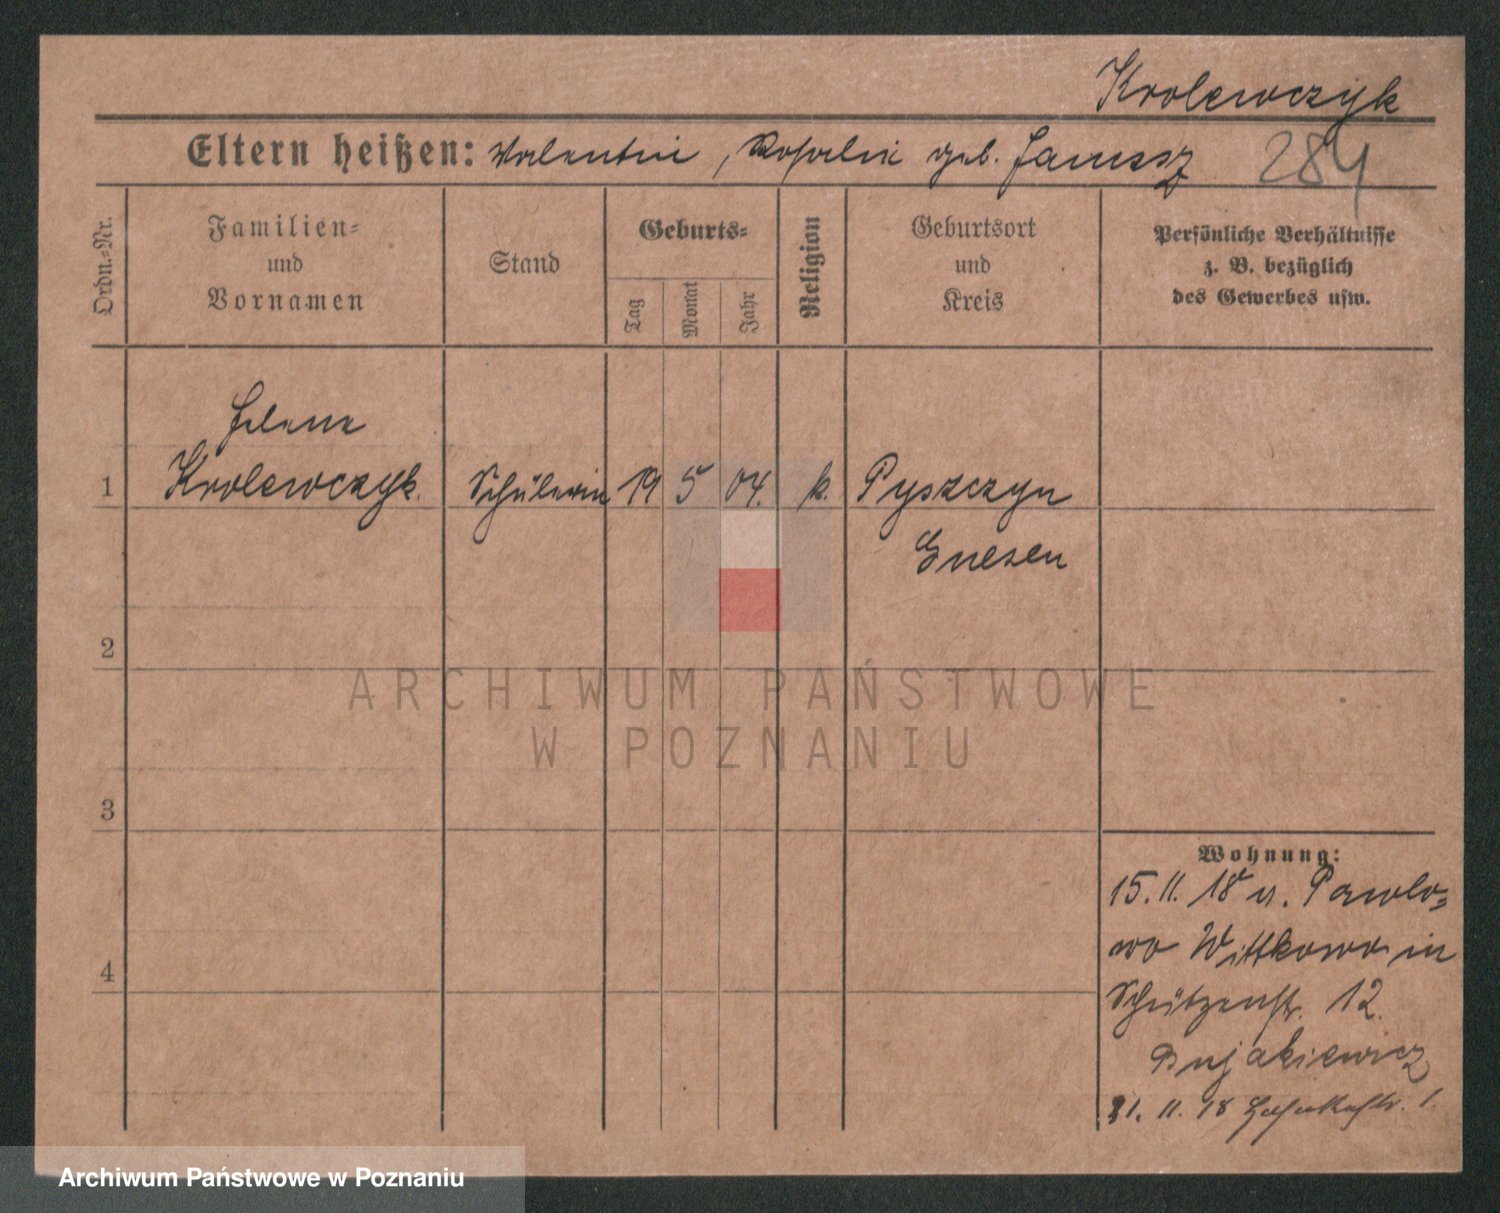 Krolewczyk
Eltern heißen: Valentin, Rosalie geb. Janussz
284
Ordn.-Nr.
Familien-
und
Vornamen
Stand
Geburts-
Tag
Monat
Jahr
Religion
Geburtsort
und
Kreis
Persönliche Verhältnisse
z. B. bezüglich
des Gewerbes usw.
Helene
1 Krolewczyk. Schülerin 19 5 04. k. Pyszczyn
Gnesen
2
3
4
ARCHIWUM PAŃSTWOWE
W POZNANIU
Wohnung:
15. 11. 18 v. Pawlo=
wo Wittkowo in
Schützenstr. 12.
Bujakiewicz
21. 11. 18 1.
Archiwum Państwowe w Poznaniu